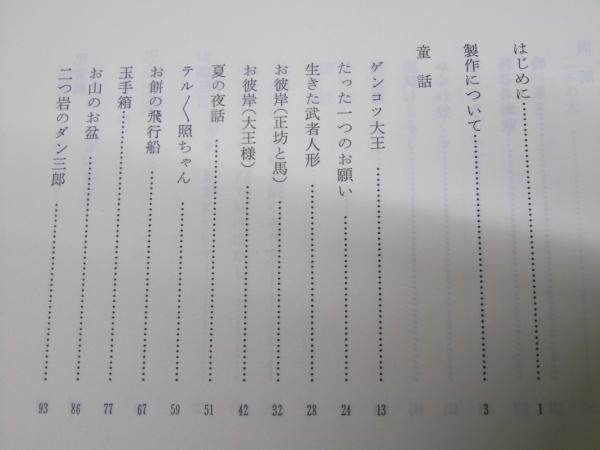 はじめに……………………………………1
製作について……………………………………3
童話
ゲンコツ大王……………………………………13
たった一つのお願い……………………………………24
生きた武者人形……………………………………28
お彼岸(正坊と馬)……………………………………32
お彼岸(大王様)……………………………………42
夏の夜話……………………………………51
テル〳〵照ちゃん……………………………………59
お餅の飛行船……………………………………67
玉手箱……………………………………77
お山のお盆……………………………………86
二つ岩のダン三郎……………………………………93